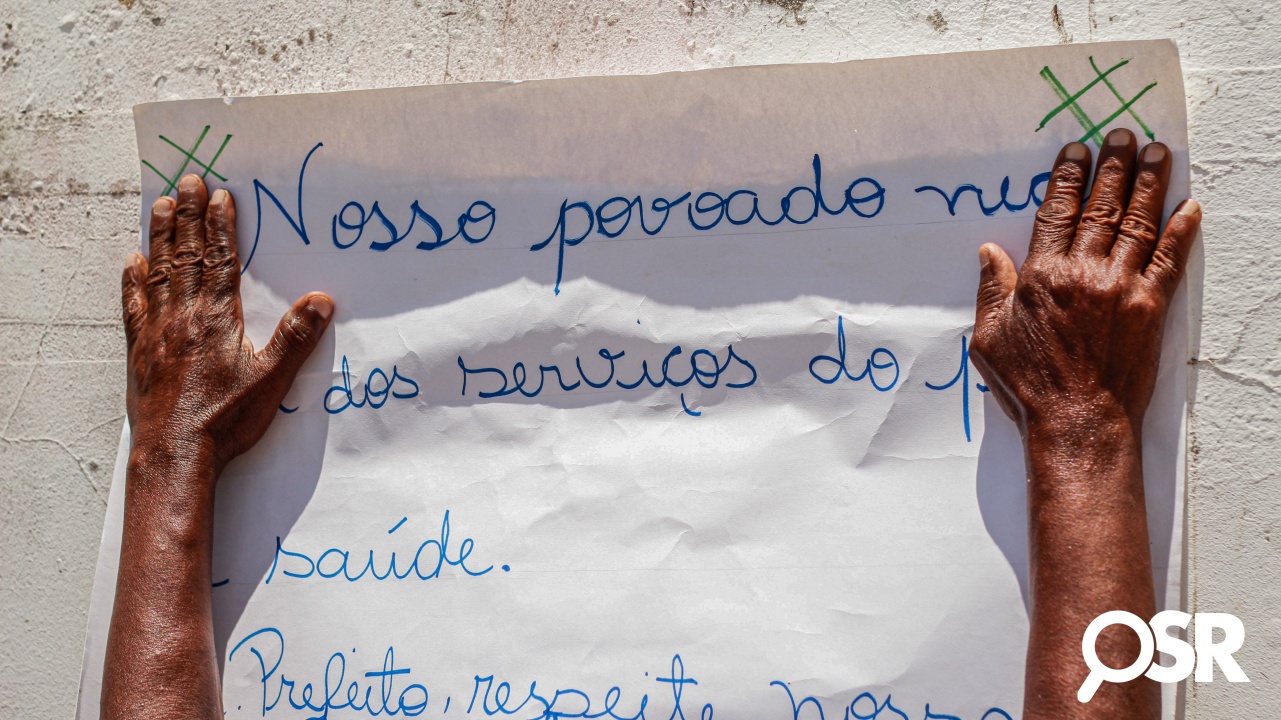 Nosso povoado
dos serviços do
saúde.
Prefeito, respeite nosso
OSR